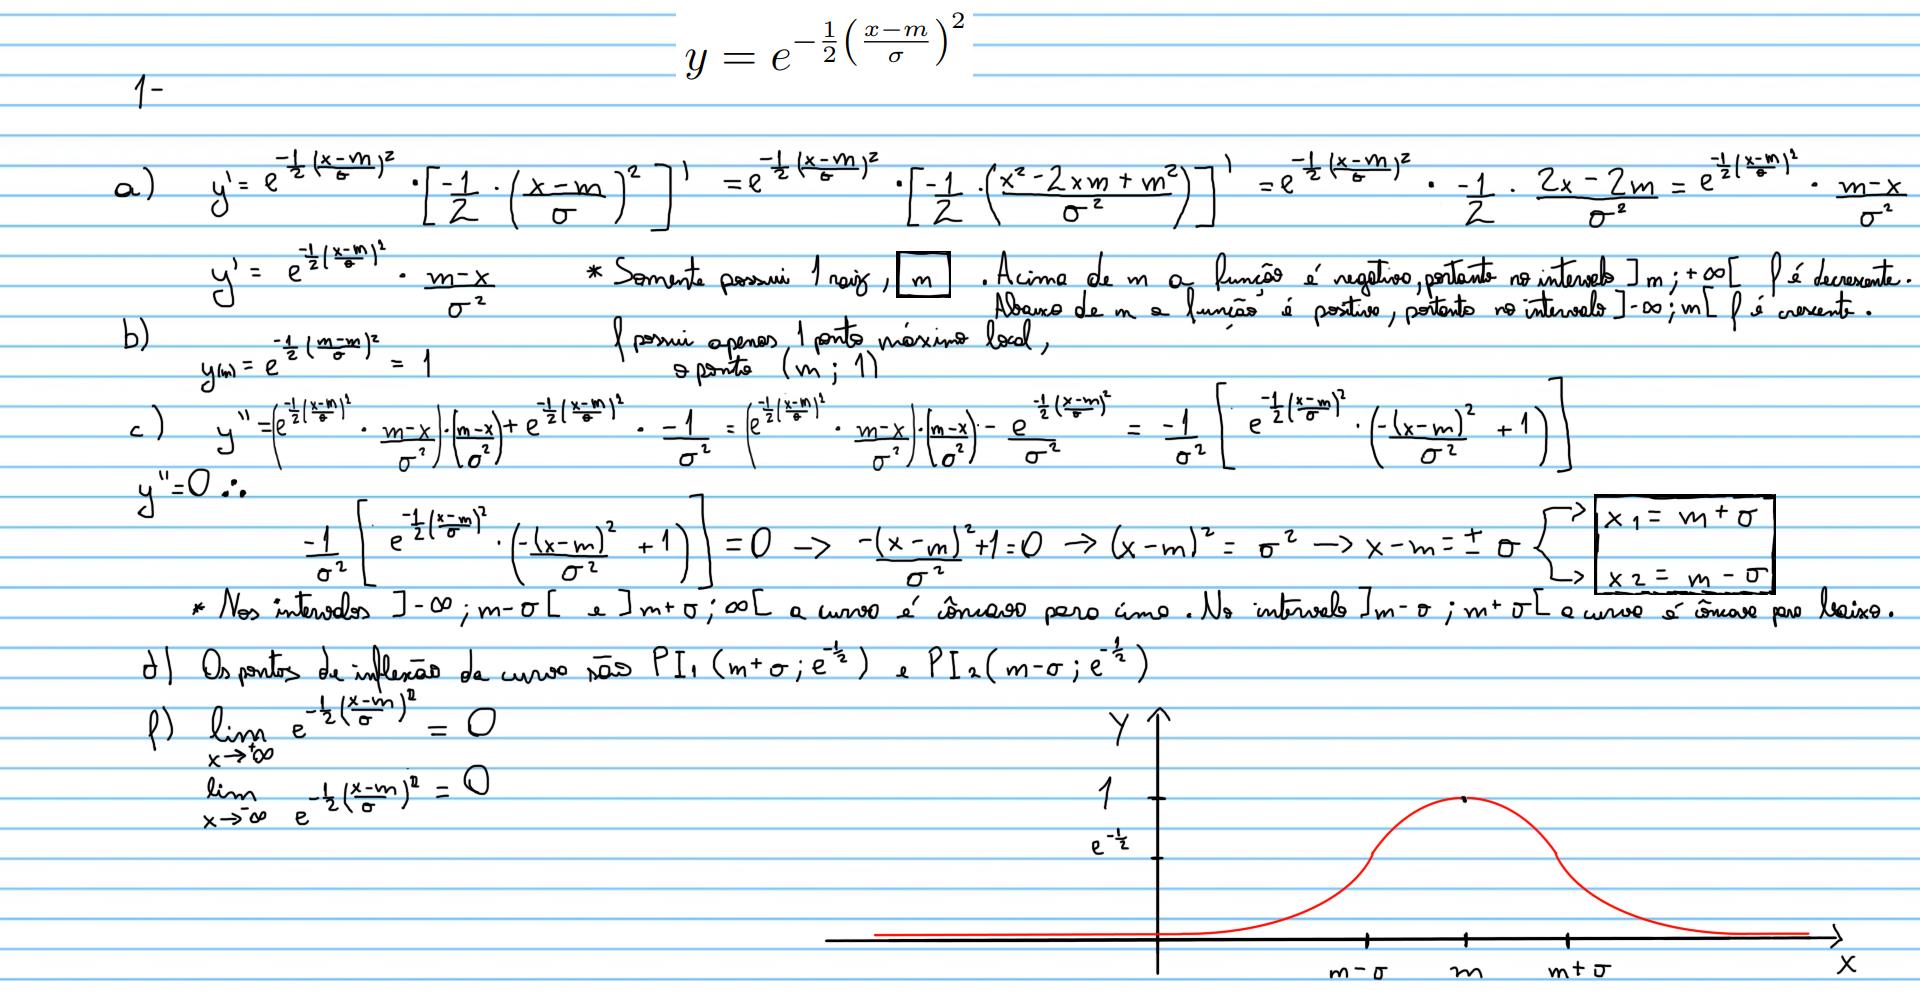 y = e^{-\frac{1}{2}\left(\frac{x-m}{\sigma}\right)^2}
1-
a) y' = e^{-\frac{1}{2}\left(\frac{x-m}{\sigma}\right)^2} · [-\frac{1}{2} · (\frac{x-m}{\sigma})^2]' = e^{-\frac{1}{2}\left(\frac{x-m}{\sigma}\right)^2} · [-\frac{1}{2} · (\frac{x^2-2xm+m^2}{\sigma^2})]' = e^{-\frac{1}{2}\left(\frac{x-m}{\sigma}\right)^2} · \frac{-1}{2} · \frac{2x-2m}{\sigma^2} = e^{-\frac{1}{2}\left(\frac{x-m}{\sigma}\right)^2} · \frac{m-x}{\sigma^2}
y' = e^{-\frac{1}{2}\left(\frac{x-m}{\sigma}\right)^2} · \frac{m-x}{\sigma^2} * Somente possui 1 raiz, m . Acima de m a função é negativo, portanto no intervalo ]m;+∞[ f é decrescente.
Abaixo de m a função é positivo, portanto no intervalo ]-∞;m[ f é crescente.
b) y(m) = e^{-\frac{1}{2}\left(\frac{m-m}{\sigma}\right)^2} = 1 f possui apenas 1 ponto máximo local,
o ponto (m ; 1)
c) y'' = (e^{-\frac{1}{2}\left(\frac{x-m}{\sigma}\right)^2} · \frac{m-x}{\sigma^2}) · (\frac{m-x}{\sigma^2}) + e^{-\frac{1}{2}\left(\frac{x-m}{\sigma}\right)^2} · \frac{-1}{\sigma^2} = (e^{-\frac{1}{2}\left(\frac{x-m}{\sigma}\right)^2} · \frac{m-x}{\sigma^2}) · (\frac{m-x}{\sigma^2}) - \frac{e^{-\frac{1}{2}\left(\frac{x-m}{\sigma}\right)^2}}{\sigma^2} = \frac{-1}{\sigma^2} [e^{-\frac{1}{2}\left(\frac{x-m}{\sigma}\right)^2} · (\frac{-(x-m)^2}{\sigma^2} + 1)]
y''=0 ∴
\frac{-1}{\sigma^2} [e^{-\frac{1}{2}\left(\frac{x-m}{\sigma}\right)^2} · (\frac{-(x-m)^2}{\sigma^2} + 1)] = 0 → \frac{-(x-m)^2}{\sigma^2}+1=0 → (x-m)^2 = σ^2 → x-m = ± σ
x1 = m+σ
x2 = m-σ
* Nos intervalos ]-∞;m-σ[ e ]m+σ;∞[ a curva é côncava para cima. No intervalo ]m-σ;m+σ[ a curva é côncava para baixo.
d) Os pontos de inflexão da curva são PI₁(m+σ;e^{-\frac{1}{2}}) e PI₂(m-σ;e^{-\frac{1}{2}})
f) \lim_{x→+∞} e^{-\frac{1}{2}\left(\frac{x-m}{\sigma}\right)^2} = 0
\lim_{x→-∞} e^{-\frac{1}{2}\left(\frac{x-m}{\sigma}\right)^2} = 0
Y
1
e^{-\frac{1}{2}}
m-σ m m+σ X